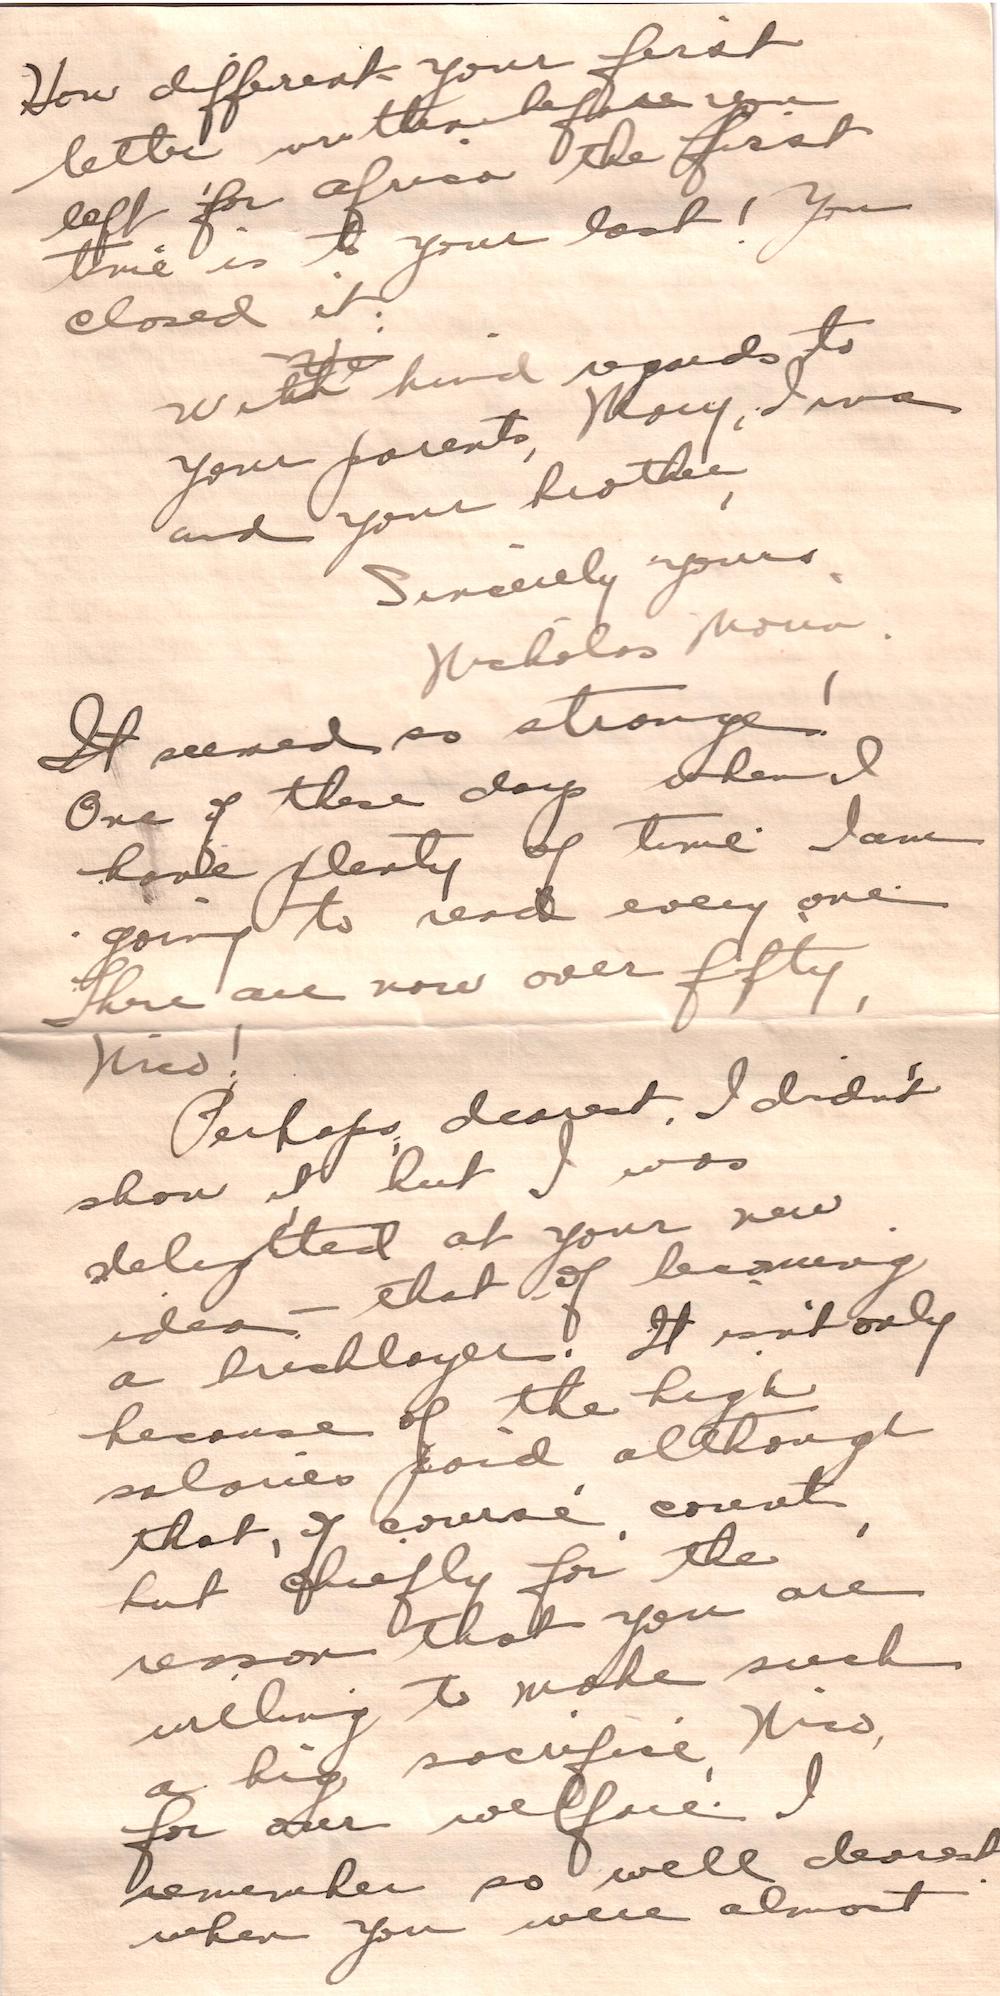 How different your first
letter written before you
left for africa the first
time is to your last! You
closed it:
With kind regards to
your parents, Mary, Irva
and your brother,
Sincerely yours,
Nicholas Morin.
It seemed so strange!
One of these days when I
have plenty of time I am
going to read every one.
There are now over fifty,
Nico!
Perhaps, dearest, I didn't
show it, but I was
delighted at your new
idea - that of becoming
a bricklayer. It isn't only
because of the high
salaries paid although
that, of course, count,
but chiefly for the
reason that you are
willing to make such
a big sacrifice, Nico,
for our welfare. I
remember so well dearest
when you were almost